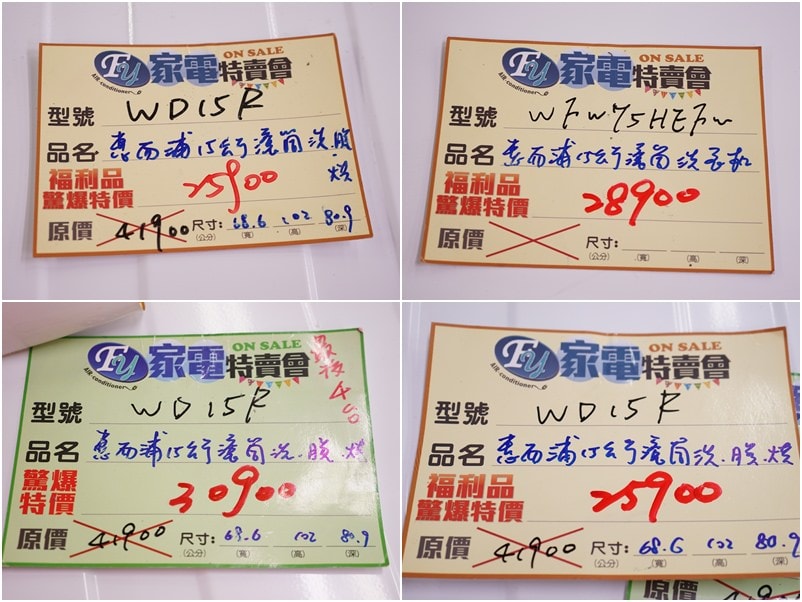 FU 家電特賣會 ON SALE
AIR-conditioner
型號 WD15R
品名 惠而浦15公斤滾筒洗.脫.烘
福利品
驚爆特價 25900
原價 41900 尺寸: 68.6 102 80.9
(公分) (寬) (高) (深)
FU 家電特賣會 ON SALE
AIR-conditioner
型號 WFW75HEFW
品名 惠而浦15公斤滾筒洗衣机
福利品
驚爆特價 28900
原價 尺寸:
(公分) (寬) (高) (深)
FU 家電特賣會 ON SALE
AIR-conditioner
最後4台
型號 WD15R
品名 惠而浦15公斤滾筒洗.脫.烘
驚爆
特價 30900
原價 41900 尺寸: 68.6 102 80.9
(公分) (寬) (高) (深)
FU 家電特賣會 ON SALE
AIR-conditioner
型號 WD15R
品名 惠而浦15公斤滾筒洗.脫.烘
福利品
驚爆特價 25900
原價 41900 尺寸: 68.6 102 80.9
(公分) (寬) (高) (深)